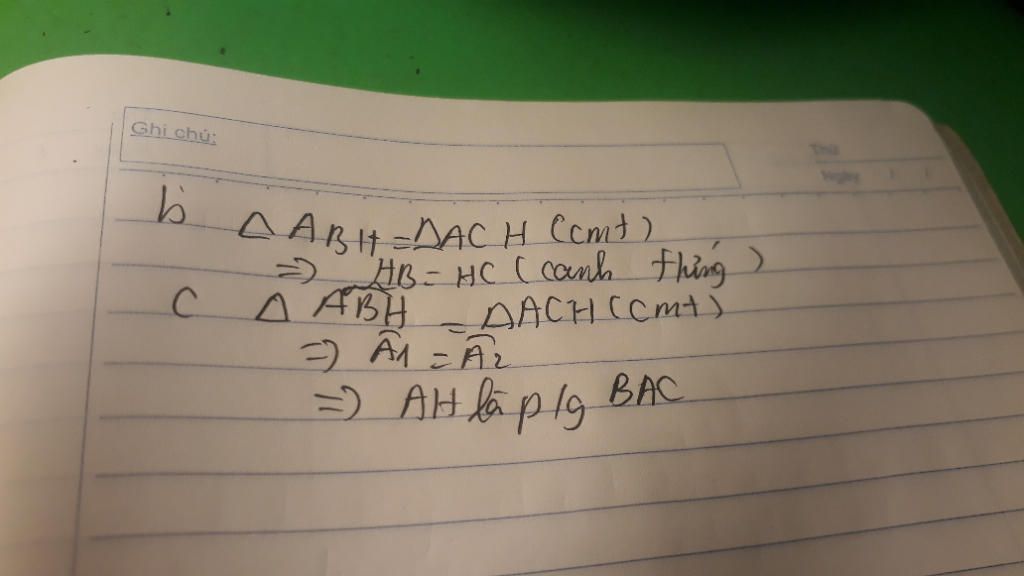 Ghi chú:
Thứ
Ngày / /
b
△ABH = △ACH (cmt)
=> HB = HC (canh
C △ABH = △ACH (cmt)
=> Â1 = Â2
=> AH là p/g BAC